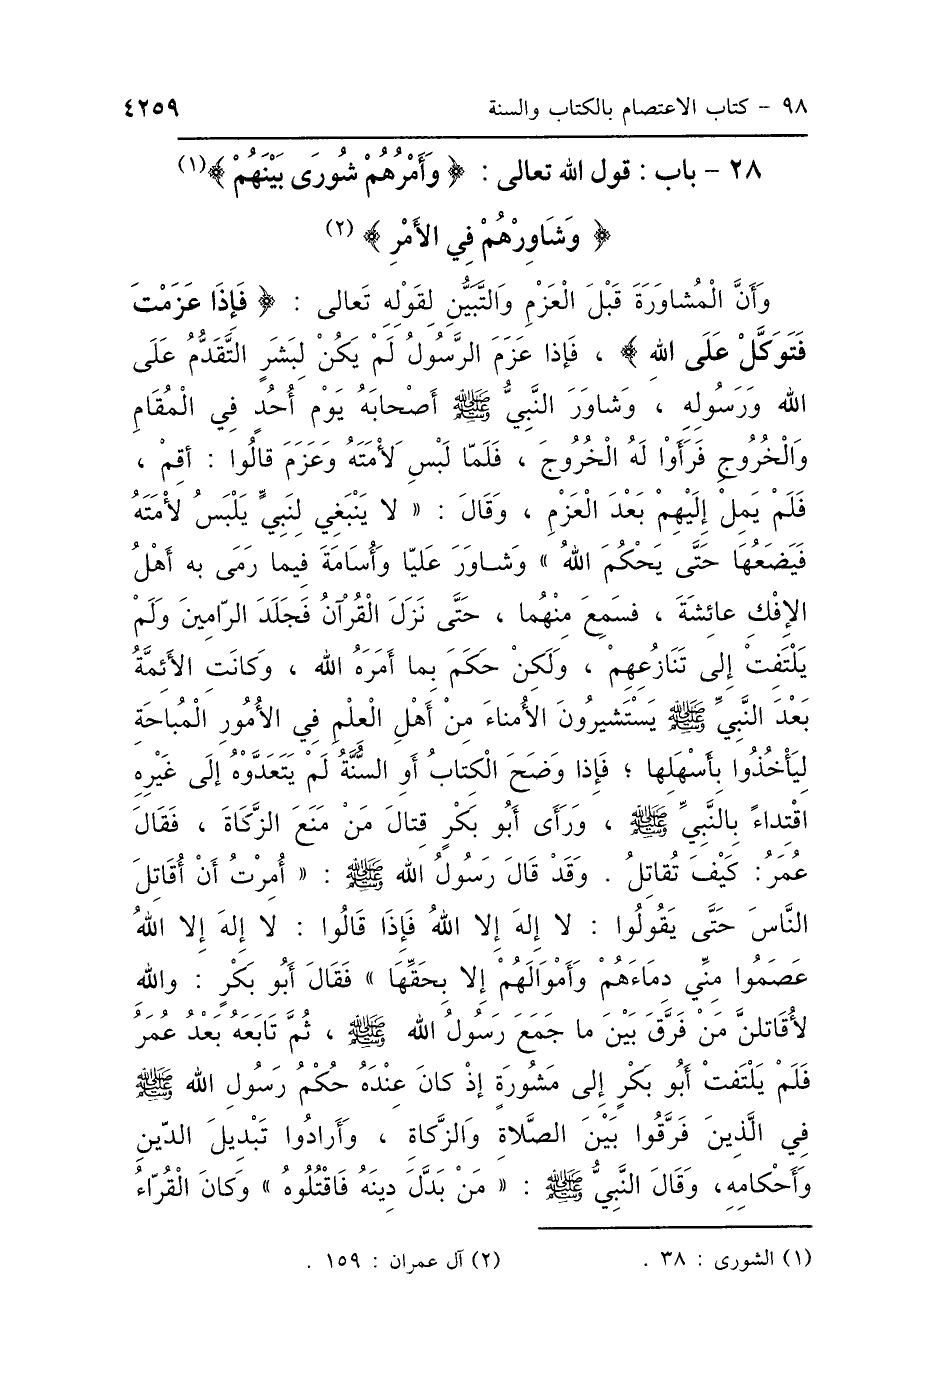 ٩٨ - كتاب الاعتصام بالكتاب والسنة ٤٢٥٩
٢٨ - باب : قول الله تعالى : ﴿ وَأَمْرُهُمْ شُورَى بَيْنَهُمْ ﴾(١)
﴿ وَشَاوِرْهُمْ فِي الأَمْرِ ﴾ (٢)
وَأَنَّ الْمُشاوَرَةَ قَبْلَ الْعَزْمِ وَالتَّبَيُّنِ لِقَوْلِهِ تَعالى : ﴿ فَإِذَا عَزَمْتَ
فَتَوَكَّلْ عَلَى اللهِ ﴾ ، فَإِذا عَزَمَ الرَّسُولُ لَمْ يَكُنْ لِبَشَرٍ التَّقَدُّمُ عَلَى
الله وَرَسُولِهِ ، وَشاوَرَ النَّبِيُّ ﷺ أَصْحابَهُ يَوْم أُحُدٍ فِي الْمُقَامِ
وَالْخُرُوجِ فَرَأَوْا لَهُ الْخُرُوجَ ، فَلَمّا لَبْسِ لَأْمَتَهُ وَعَزَمَ قالُوا : أَقِمْ ،
فَلَمْ يَمِلْ إِلَيْهِمْ بَعْدَ الْعَزْمِ ، وَقَالَ : « لا يَنْبَغِي لِنَبِيٍّ يَلْبَسُ لأْمَتَهُ
فَيَضَعُهَا حَتَّى يَحْكُمَ اللهُ » وَشاوَرَ عَلِيّا وَأُسَامَةَ فِيما رَمَى به أَهْلُ
الإِفْكِ عائِشَةَ ، فَسَمِعَ مِنْهُما ، حَتَّى نَزَلَ الْقُرْآنُ فَجَلَدَ الرّامِينَ وَلَمْ
يَلْتَفِتْ إلى تَنَازُعِهِمْ ، وَلَكِنْ حَكَمَ بِما أَمَرَهُ الله ، وَكانَت الأئِمَّةُ
بَعْدَ النَّبِيِّ ﷺ يَسْتَشِيرُونَ الأُمناءَ مِنْ أَهْلِ الْعِلْمِ فِي الأُمُورِ الْمُباحَةِ
لِيَأْخُذُوا بِأَسْهَلِها ؛ فَإِذا وَضَحَ الْكِتابُ أَو السُّنَّةُ لَمْ يَتَعَدَّوْهُ إِلَى غَيْرِهِ
اقْتِداءً بِالنَّبِيِّ ﷺ ، وَرَأَى أَبُو بَكْرٍ قِتالَ مَنْ مَنَعَ الزَّكَاةَ ، فَقَالَ
عُمَرُ: كَيْفَ تُقاتِلُ . وَقَدْ قَالَ رَسُولُ الله ﷺ : « أُمِرْتُ أَنْ أُقَاتِلَ
النَّاسَ حَتَّى يَقُولُوا : لا إِلهَ إِلا اللهُ فَإِذَا قَالُوا : لا إِلهَ إِلا اللهُ
عَصَمُوا مِنِّي دِماءَهُمْ وَأَمْوَالَهُمْ إِلا بِحَقِّهَا » فَقَالَ أَبُو بَكْرٍ : والله
لأُقَاتِلَنَّ مَنْ فَرَّقَ بَيْنَ ما جَمَعَ رَسُولُ الله ﷺ ، ثُمَّ تابَعَهُ بَعْدُ عُمَرُ
فَلَمْ يَلْتَفِتْ أَبُو بَكْرٍ إِلى مَشُورَةٍ إِذْ كانَ عِنْدَهُ حُكْمُ رَسُولِ الله ﷺ
فِي الَّذِينَ فَرَّقُوا بَيْنَ الصَّلاةِ وَالزَّكاةِ ، وَأَرادُوا تَبْدِيلَ الدّينِ
وَأَحْكامِهِ، وَقَالَ النَّبِيُّ ﷺ : « مَنْ بَدَّلَ دِينَهُ فَاقْتُلُوهُ » وَكانَ الْقُرّاءُ
(١) الشورى : ٣٨ . (٢) آل عمران : ١٥٩ .